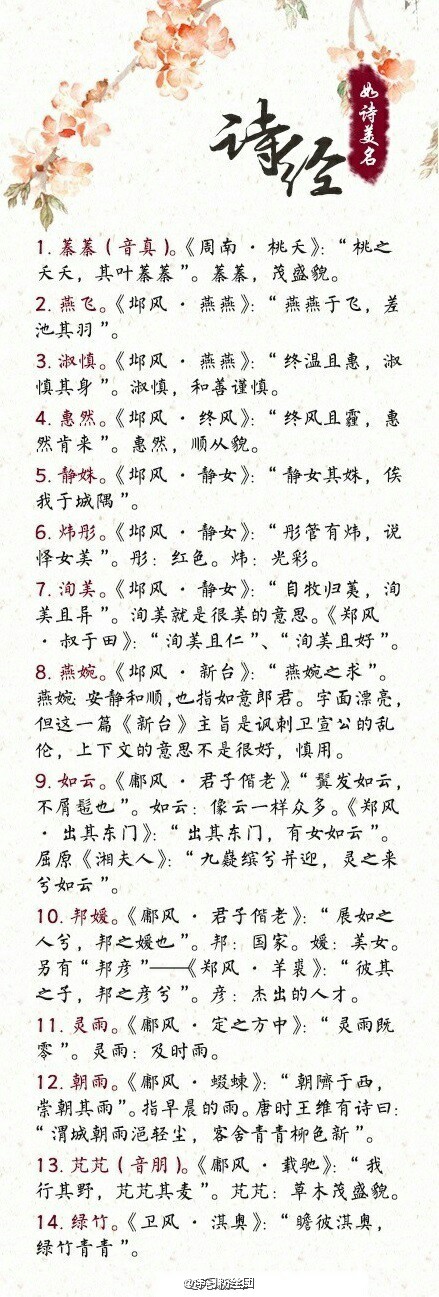 诗经
如诗美名
1. 蓁蓁(音真)。《周南·桃夭》：“桃之
夭夭，其叶蓁蓁”。蓁蓁，茂盛貌。
2. 燕飞。《邶风·燕燕》：“燕燕于飞，差
池其羽”。
3. 淑慎。《邶风·燕燕》：“终温且惠，淑
慎其身”。淑慎，和善谨慎。
4. 惠然。《邶风·终风》：“终风且霾，惠
然肯来”。惠然，顺从貌。
5. 静姝。《邶风·静女》：“静女其姝，俟
我于城隅”。
6. 炜彤。《邶风·静女》：“彤管有炜，说
怿女美”。彤：红色。炜：光彩。
7. 洵美。《邶风·静女》：“自牧归荑，洵
美且异”。洵美就是很美的意思。《郑风
·叔于田》：“洵美且仁”、“洵美且好”。
8. 燕婉。《邶风·新台》：“燕婉之求”。
燕婉 安静和顺，也指如意郎君。字面漂亮，
但这一篇《新台》主旨是讽刺卫宣公的乱
伦，上下文的意思不是很好，慎用。
9. 如云。《鄘风·君子偕老》“鬒发如云，
不屑髢也”。如云：像云一样众多。《郑风
·出其东门》：“出其东门，有女如云”。
屈原《湘夫人》：“九嶷缤兮并迎，灵之来
兮如云”。
10. 邦媛。《鄘风·君子偕老》：“展如之
人兮，邦之媛也”。邦：国家。媛：美女。
另有“邦彦”——《郑风·羊裘》：“彼其
之子，邦之彦兮”。彦：杰出的人才。
11. 灵雨。《鄘风·定之方中》：“灵雨既
零”。灵雨：及时雨。
12. 朝雨。《鄘风·蝃蝀》：“朝隮于西，
崇朝其雨”。指早晨的雨。唐时王维有诗曰：
“渭城朝雨浥轻尘，客舍青青柳色新”。
13. 芃芃(音朋)。《鄘风·载驰》：“我
行其野，芃芃其麦”。芃芃：草木茂盛貌。
14. 绿竹。《卫风·淇奥》：“瞻彼淇奥，
绿竹青青”。
@学习粉丝团